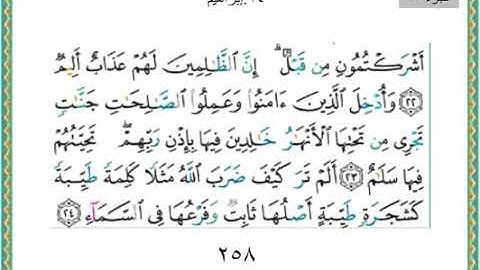 ١٤ إبراهيم
أَشْرَكْتُمُونِ مِن قَبْلُ ۗ إِنَّ ٱلظَّـٰلِمِينَ لَهُمْ عَذَابٌ أَلِيمٌ
﴿٢٢﴾ وَأُدْخِلَ ٱلَّذِينَ ءَامَنُوا۟ وَعَمِلُوا۟ ٱلصَّـٰلِحَـٰتِ جَنَّـٰتٍ
تَجْرِى مِن تَحْتِهَا ٱلْأَنْهَـٰرُ خَـٰلِدِينَ فِيهَا بِإِذْنِ رَبِّهِمْ ۖ تَحِيَّتُهُمْ
فِيهَا سَلَـٰمٌ ﴿٢٣﴾ أَلَمْ تَرَ كَيْفَ ضَرَبَ ٱللَّهُ مَثَلًا كَلِمَةً طَيِّبَةً
كَشَجَرَةٍ طَيِّبَةٍ أَصْلُهَا ثَابِتٌ وَفَرْعُهَا فِى ٱلسَّمَآءِ ﴿٢٤﴾
٢٥٨